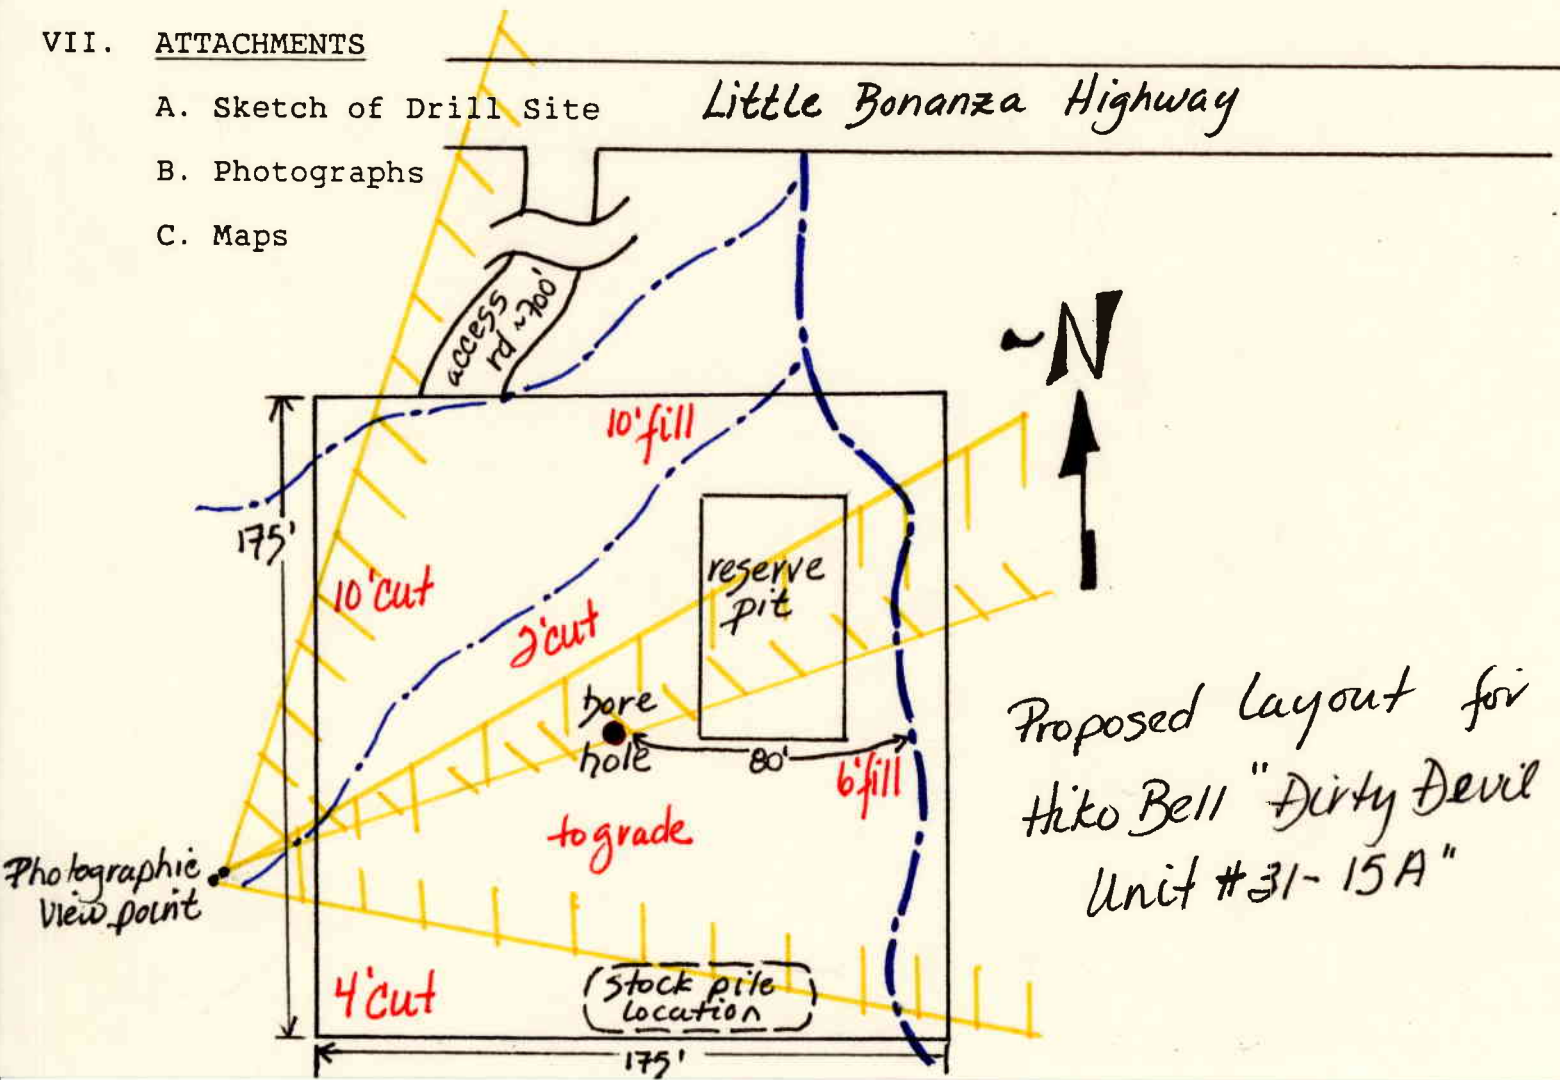 VII. ATTACHMENTS
A. Sketch of Drill Site
B. Photographs
C. Maps
Little Bonanza Highway
access
rd ~700'
~N
10' fill
175'
10' cut
2' cut
reserve
pit
bore
hole
80'
6' fill
to grade
Photographic
View point
4' cut
Stock pile
Location
175'
Proposed Layout for
Hiko Bell "Dirty Devil
Unit #31-15A"